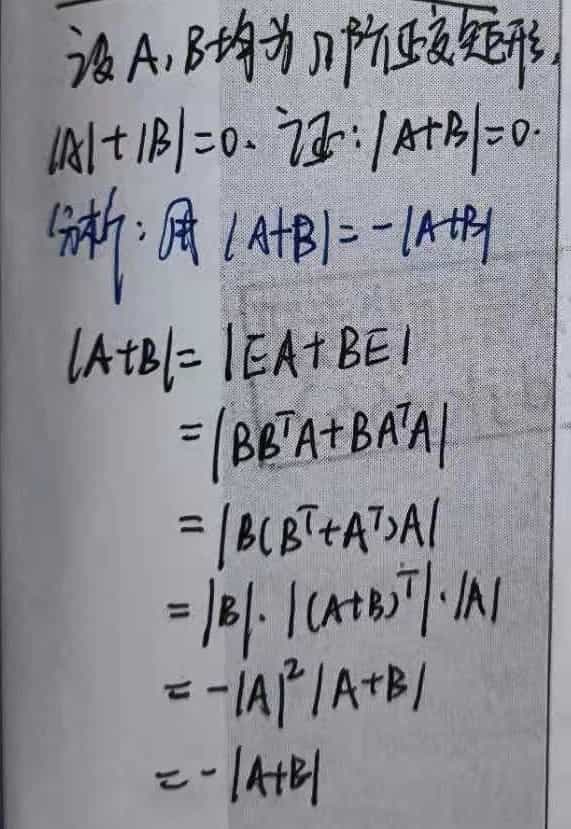 设A,B均为n阶正交矩形,
|A|+|B|=0. 证:|A+B|=0.
分析:用 |A+B|=-|A+B|
|A+B|=|EA+BE|
=|BBᵀA+BAᵀA|
=|B(Bᵀ+Aᵀ)A|
=|B|·|(A+B)ᵀ|·|A|
=-|A|²|A+B|
=-|A+B|